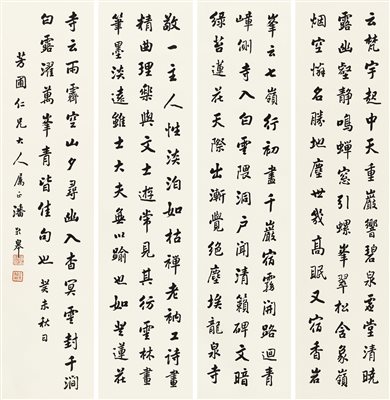 云梵宇起中天重嚴響碧泉虛堂清曉
露幽壑靜鳴蟬窓引螺峯翠松含象嶺
烟空憐名勝地塵世幾高眠又宿香岩
峯云七嶺行初盡千巖宿霧開路迴青
嶂側寺入白雲隈洞戶聞清籟碑文暗
綠苔蓮花天際出漸覺絕塵埃龍泉寺
敬一主人性淡泊如枯禪老衲工詩畫
精曲理樂與文士遊常見其仿雲林畫
筆墨淡遠雖士大夫無以踰也如望蓮花
寺云雨霽空山夕尋幽入杳冥雲封千澗
白露濯萬峯青皆佳句也 癸未秋日
芳圃仁兄大人屬正潘齡皋